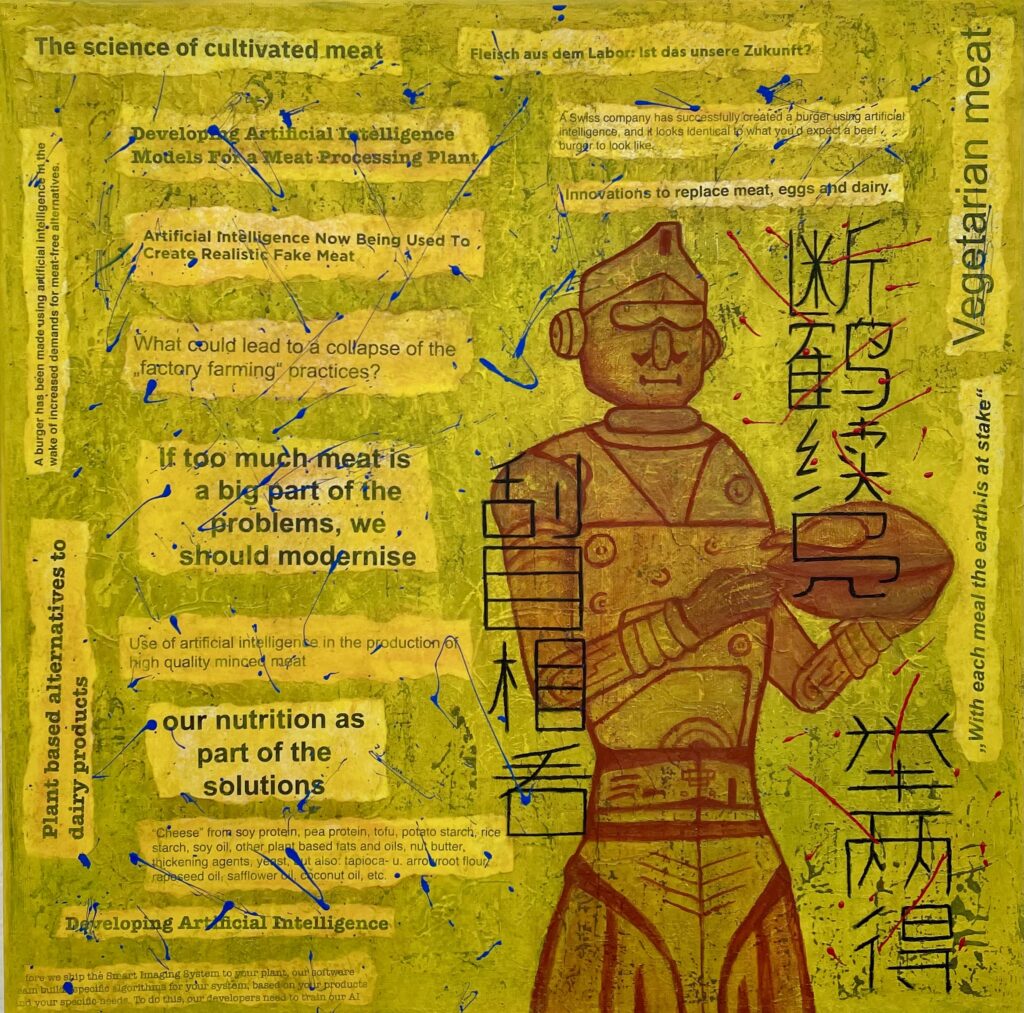 The science of cultivated meat
Fleisch aus dem Labor: Ist das unsere Zukunft?
Vegetarian meat
A Swiss company has successfully created a burger using artificial
intelligence, and it looks identical to what you'd expect a beef
burger to look like.
Developing Artificial Intelligence
Models For a Meat Processing Plant
A burger has been made using artificial intelligence in the
wake of increased demands for meat-free alternatives.
Innovations to replace meat, eggs and dairy.
Artificial Intelligence Now Being Used To
Create Realistic Fake Meat
断鹤续凫
What could lead to a collapse of the
„factory farming“ practices?
„With each meal the earth is at stake“
If too much meat is
a big part of the
problems, we
should modernise
刮目相看
Plant based alternatives to
dairy products
Use of artificial intelligence in the production of
high quality minced meat
our nutrition as
part of the
solutions
举两得
"Cheese" from soy protein, pea protein, tofu, potato starch, rice
starch, soy oil, other plant based fats and oils, nut butter,
thickening agents, yeast, but also: tapioca- u. arrowroot flour,
rapeseed oil, safflower oil, coconut oil, etc.
Developing Artificial Intelligence
we ship the Smart Imaging System to your plant, our software
build specific algorithms for your system, based on your products
your specific needs. To do this, our developers need to train our AI